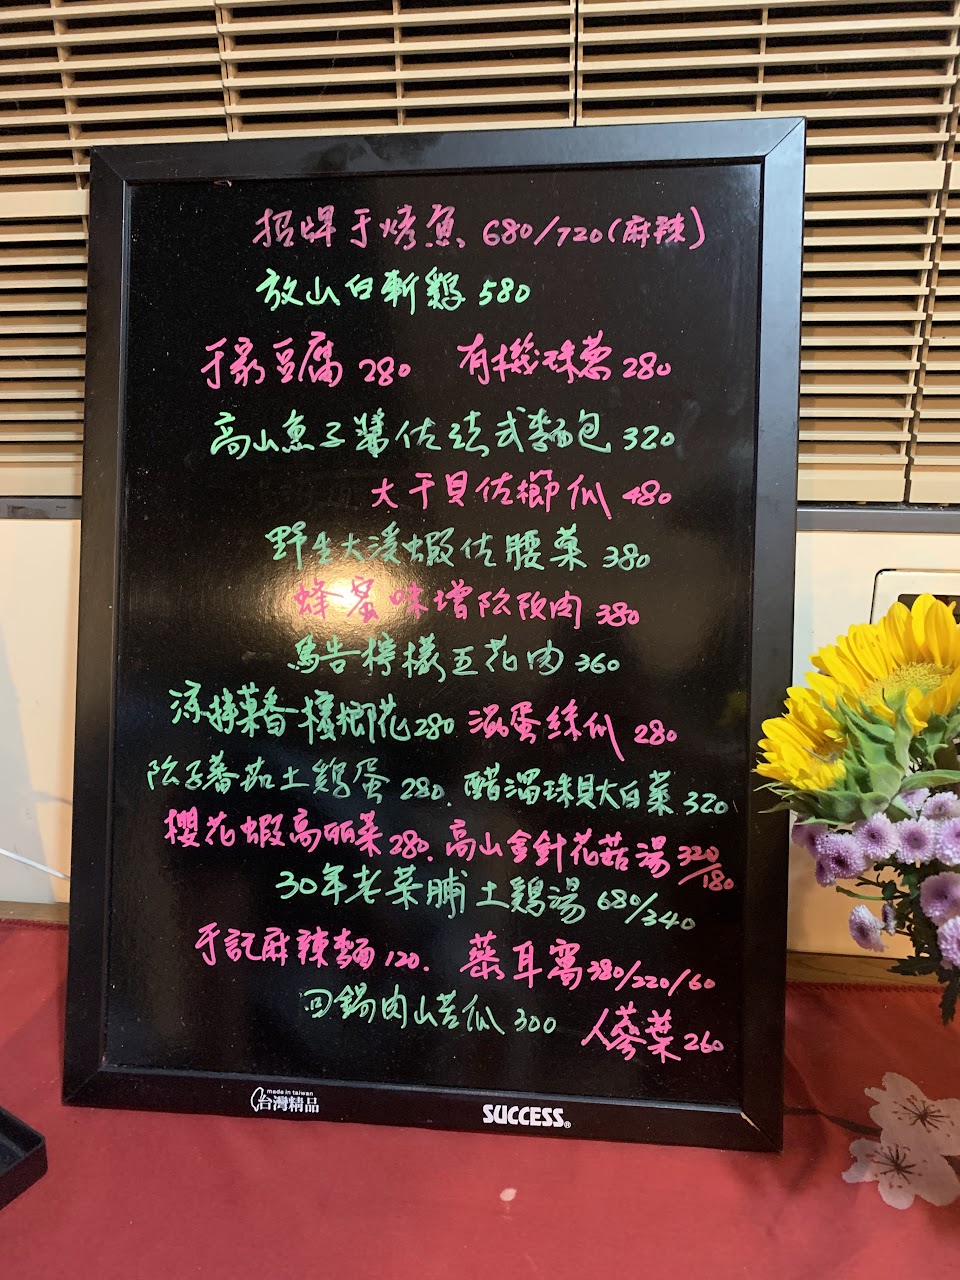 招牌于烤魚 680/720(麻辣)
放山白斬雞 580
于家豆腐 280 有機珠蔥 280
高山魚子醬佐法式麵包 320
大干貝佐櫛瓜 480
野生大溪蝦佐腰菓 380
蜂蜜味增阪肉 380
馬告檸檬五花肉 360
涼拌藿香檳榔花 280 溫蛋絲瓜 280
蕃茄土鷄蛋 280. 醋溜珠貝大白菜 320
櫻花蝦高麗菜 280. 高山金針花菇湯 320/180
30年老菜脯土鷄湯 680/340
于記麻辣麵 120. 燕耳窩 380/220/60
回鍋肉山苦瓜 300 人蔘葉 260
made in taiwan
台灣精品
SUCCESS®